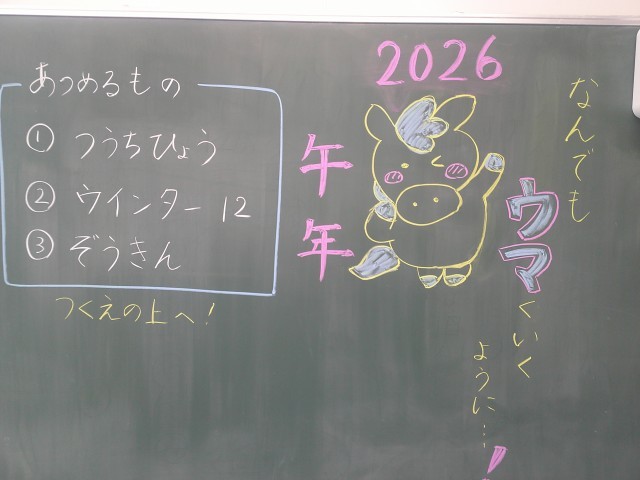 あつめるもの
① つうちひょう
② ウインター12
③ ぞうきん
つくえの上へ!
2026
午年
なんでも
ウマくいく
ように…!